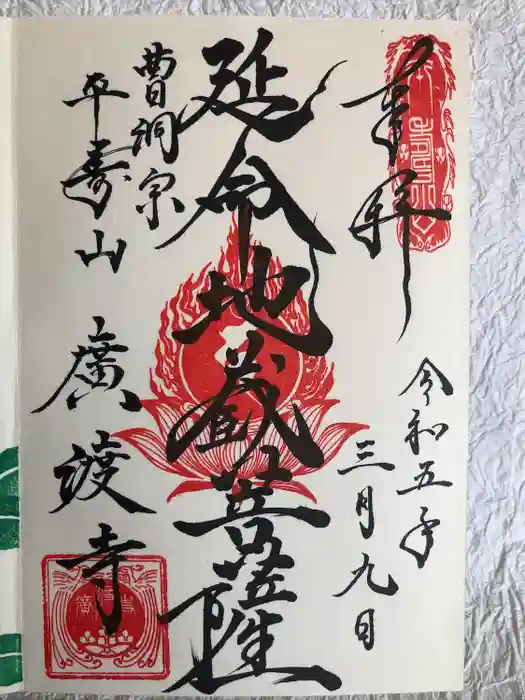 奉拝
令和五年
三月九日
延命地蔵菩薩
曹洞宗
平壽山 廣渡寺